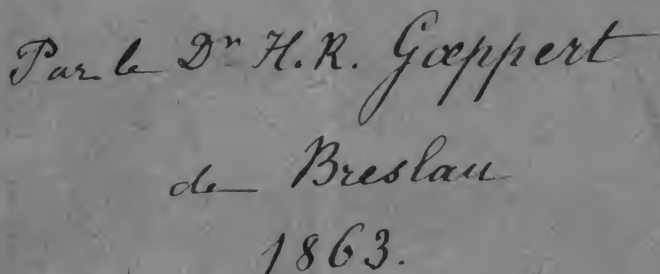 Par le Dr H. R. Gœppert
de Breslau
1863.